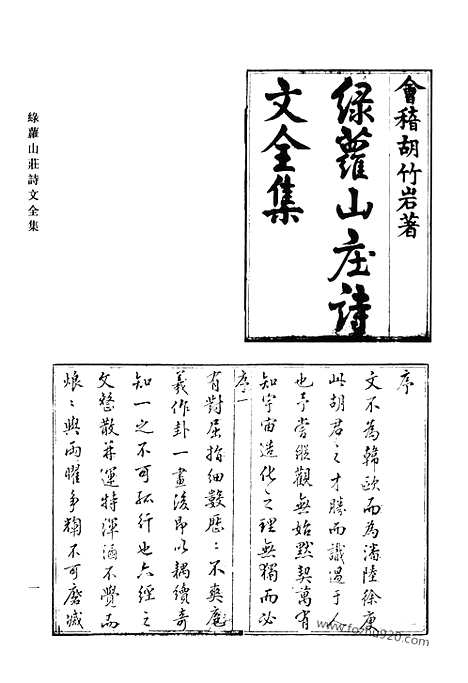 會稽胡竹岩著
綠蘿山庄詩
文全集
綠蘿山莊詩文全集
序
文不為韓歐而為潘陸徐庾
此胡君之才勝而識過于人
也予嘗縱觀無始默契萬有
知宇宙造化之理無獨而必
序一
有對屈指細數歷〻不爽庖
羲作卦一畫後即以耦續奇
知一之不可孤行也六經之
文整散並運特渾涵不覺而
烺〻與兩曜爭鞠不可磨滅
一
www.fozhu920.com